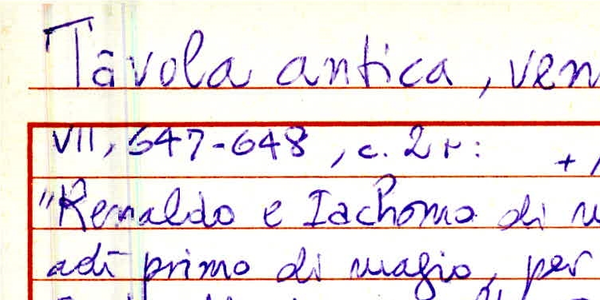 Tavola antica, ven
VII, 647-648, c. 2 r: +
"Renaldo e Iachomo di
adì primo di magio, per